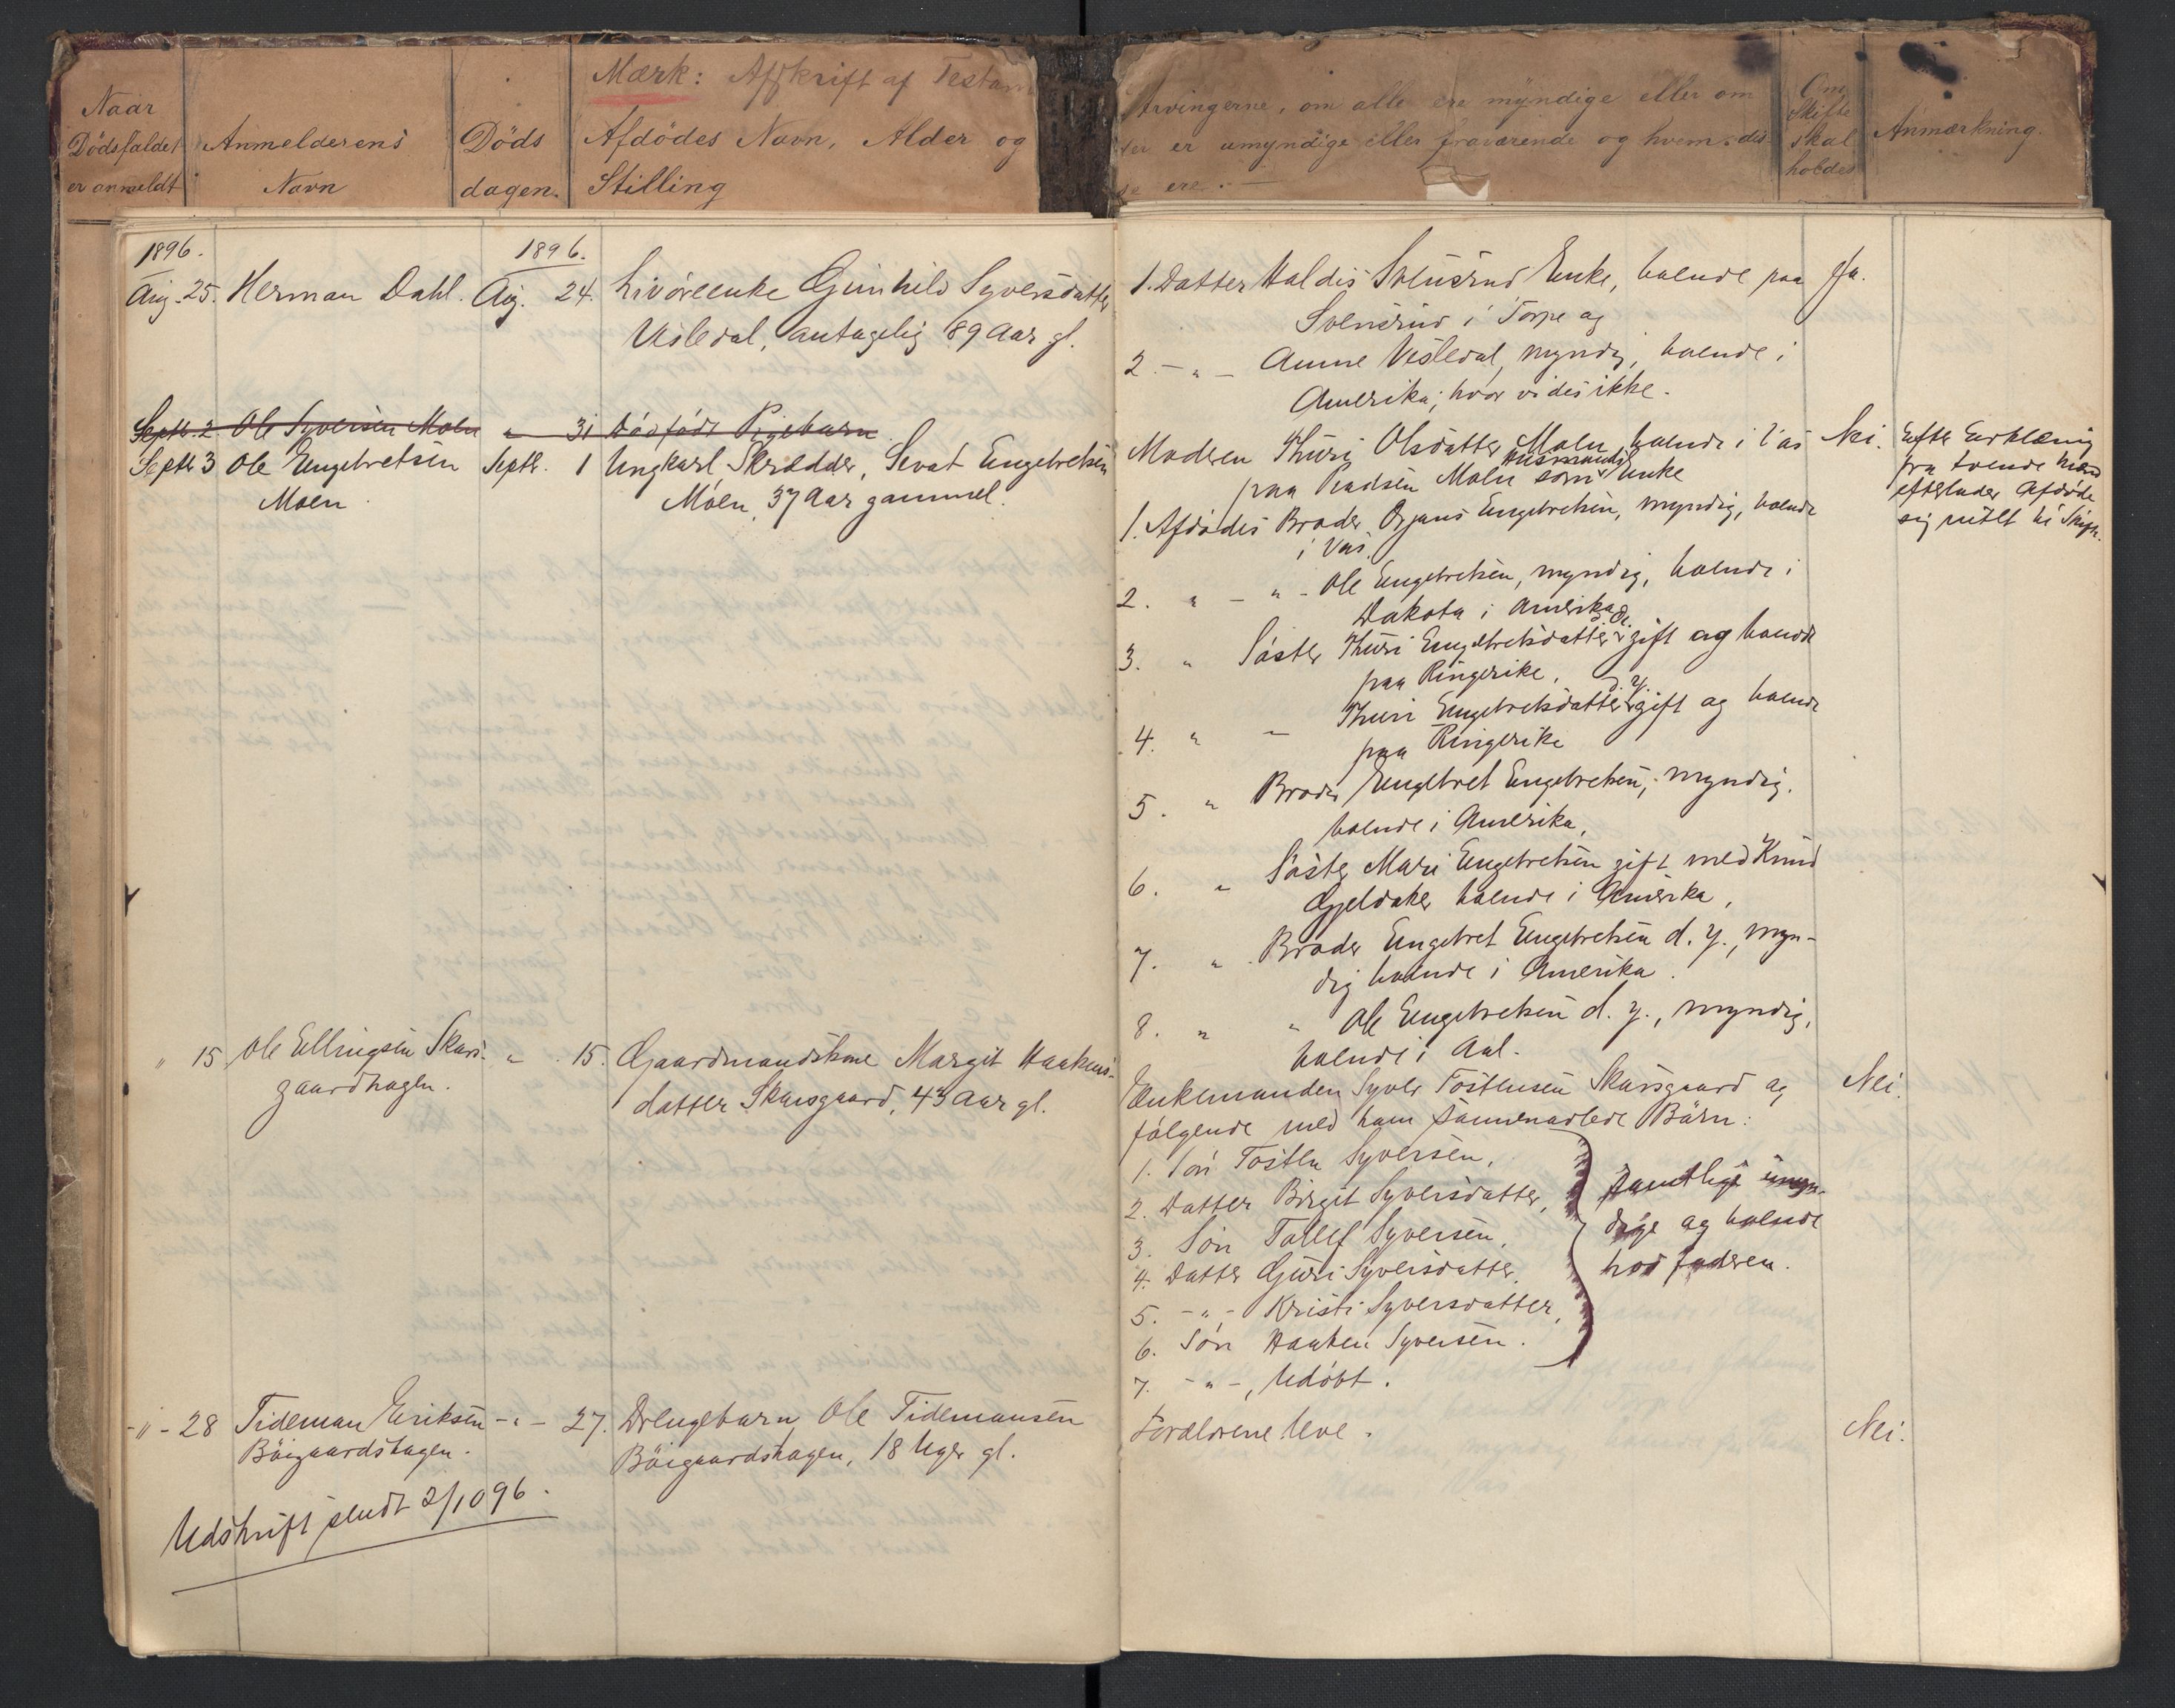 Mærk: Afskrift af Testam
Naar
Dödsfaldet
er anmeldt
Anmelderens
Navn
Döds
dagen.
Afdödes Navn, Alder og
Stilling
Arvingerne, om alle ere myndige eller om
er umyndige eller fraværende og hvem dis-
se ere.
Om
Skifte
skal
holdes
Anmærkning.
1896.
Aug. 25. Herman Dahl.
1896.
Aug. 24. Livöreenke Gunhild Syversdatter
Vesledal, antagelig 89 Aar gl.
1. Datter Haldis Svensrud Enke, boende paa
Svensrud i Torpe og
2 - " - Anne Vesledal, myndig, boende i
Amerika; hvor vides ikke.
Ja.
Septb. 2. Ole Syversen Moen " 31 Dödfödt Pigebarn
Septb. 3 Ole Engebretsen
Moen.
Septb. 1 Ungkarl Skrædder, Sevat Engebretsen
Moen, 37 Aar gammel.
Moderen Thuri Olsdatter Moen, boende i Vas
paa Pladsen Moen som Husmands Enke
1. Afdödes Broder Orjans Engebretsen, myndig, boende
i Vas.
2. " - " - Ole Engebretsen, myndig, boende i
Dakota i Amerika
3. " Söster Thuri Engebretsdatter d. æ. gift og boende
paa Ringerike.
4. " - Thuri Engebretsdatter d. y. gift og boende
paa Ringerike
5. " Broder Engebret Engebretsen, myndig,
boende i Amerika,
6. " Söster Mari Engebretsen gift med Knud
Gjeldaker boende i Amerika,
7. " Broder Engebret Engebretsen d. y., myn-
dig boende i Amerika.
8. " " Ole Engebretsen d. y., myndig,
boende i Aal.
Nei.
Efter Erklæring
fra boende
efterlader Afdöde
sig intet til Skifte.
" 15 Ole Ellingsen Skars-
gaardhagen.
" 15. Gaardmandskone Margit Haakens-
datter Skarsgaard, 43 Aar gl.
Enkemanden Syver Tostensen Skarsgaard og
fölgende med ham sammenavlede Börn:
1. Sön Tosten Syversen,
2. Datter Birgit Syversdatter,
3. Sön Tollef Syversen,
4. Datter Guri Syversdatter,
5. - " - Kristi Syversdatter,
6. Sön Haaken Syversen.
7. - " -, Udöbt.
samtlige umyn-
dige og boende
hos faderen.
Nei.
- " - 28 Tideman Eriksen
Böigaardshagen.
- " - 27. Drengebarn Ole Tidemansen
Böigaardshagen, 18 Uger gl.
Forældrene leve.
Nei.
Udskrift sendt 2/10 96.